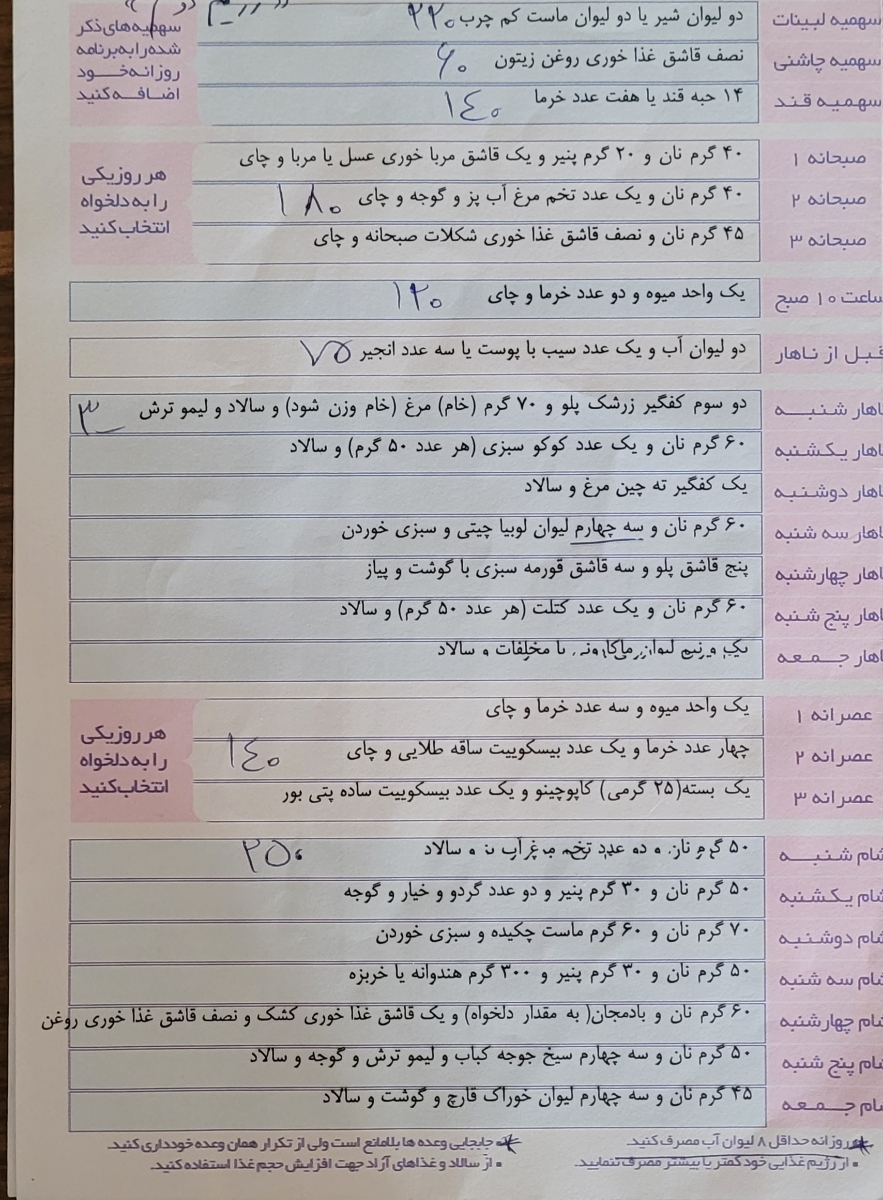 سهمیه لبینات دو لیوان شیر یا دو لیوان ماست کم چرب ۲۲۰
سهمیه چاشنی نصف قاشق غذا خوری روغن زیتون ۶۰
سهمیه قند ۱۴ حبه قند یا هفت عدد خرما ۱٤۰
سهمیه‌های ذکر
شده را به برنامه
روزانه خود
اضافه کنید
صبحانه ۱ ۴۰ گرم نان و ۲۰ گرم پنیر و یک قاشق مربا خوری عسل یا مربا و چای
صبحانه ۲ ۴۰ گرم نان و یک عدد تخم مرغ آب پز و گوجه و چای ۱۸۰
صبحانه ۳ ۴۵ گرم نان و نصف قاشق غذا خوری شکلات صبحانه و چای
هر روز یکی
را به دلخواه
انتخاب کنید
ساعت ۱۰ صبح یک واحد میوه و دو عدد خرما و چای ۱۲۰
قبل از ناهار دو لیوان آب و یک عدد سیب با پوست یا سه عدد انجیر ۷۵
ناهار شنبه دو سوم کفگیر زرشک پلو و ۷۰ گرم (خام) مرغ (خام وزن شود) و سالاد و لیمو ترش
ناهار یکشنبه ۶۰ گرم نان و یک عدد کوکو سبزی (هر عدد ۵۰ گرم) و سالاد
ناهار دوشنبه یک کفگیر ته چین مرغ و سالاد
ناهار سه شنبه ۶۰ گرم نان و سه چهارم لیوان لوبیا چیتی و سبزی خوردن
ناهار چهارشنبه پنج قاشق پلو و سه قاشق قورمه سبزی با گوشت و پیاز
ناهار پنج شنبه ۶۰ گرم نان و یک عدد کتلت (هر عدد ۵۰ گرم) و سالاد
ناهار جمعه یک و نیم لیوان ماکارونی با مخلفات و سالاد
عصرانه ۱ یک واحد میوه و سه عدد خرما و چای
عصرانه ۲ چهار عدد خرما و یک عدد بیسکوییت ساقه طلایی و چای ۱٤۰
عصرانه ۳ یک بسته(۲۵ گرمی) کاپوچینو و یک عدد بیسکوییت ساده پتی بور
هر روز یکی
را به دلخواه
انتخاب کنید
شام شنبه ۵۰ گرم نان و دو عدد تخم مرغ آب پز و سالاد ۲۵۰
شام یکشنبه ۵۰ گرم نان و ۳۰ گرم پنیر و دو عدد گردو و خیار و گوجه
شام دوشنبه ۷۰ گرم نان و ۶۰ گرم ماست چکیده و سبزی خوردن
شام سه شنبه ۵۰ گرم نان و ۳۰ گرم پنیر و ۳۰۰ گرم هندوانه یا خربزه
شام چهارشنبه ۶۰ گرم نان و بادمجان( به مقدار دلخواه) و یک قاشق غذا خوری کشک و نصف قاشق غذا خوری روغن
شام پنج شنبه ۵۰ گرم نان و سه چهارم سیخ جوجه کباب و لیمو ترش و گوجه و سالاد
شام جمعه ۴۵ گرم نان و سه چهارم لیوان خوراک قارچ و گوشت و سالاد
روزانه حداقل ۸ لیوان آب مصرف کنید.
از رژیم غذایی خود کمتر یا بیشتر مصرف ننمایید.
جابجایی وعده ها بلامانع است ولی از تکرار همان وعده خودداری کنید.
از سالاد و غذاهای آزاد جهت افزایش حجم غذا استفاده کنید.